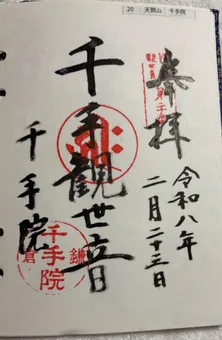 20 天照山 千手院
奉拝
令和八年
二月二十三日
千手観世音
千手院
鎌倉
千手院